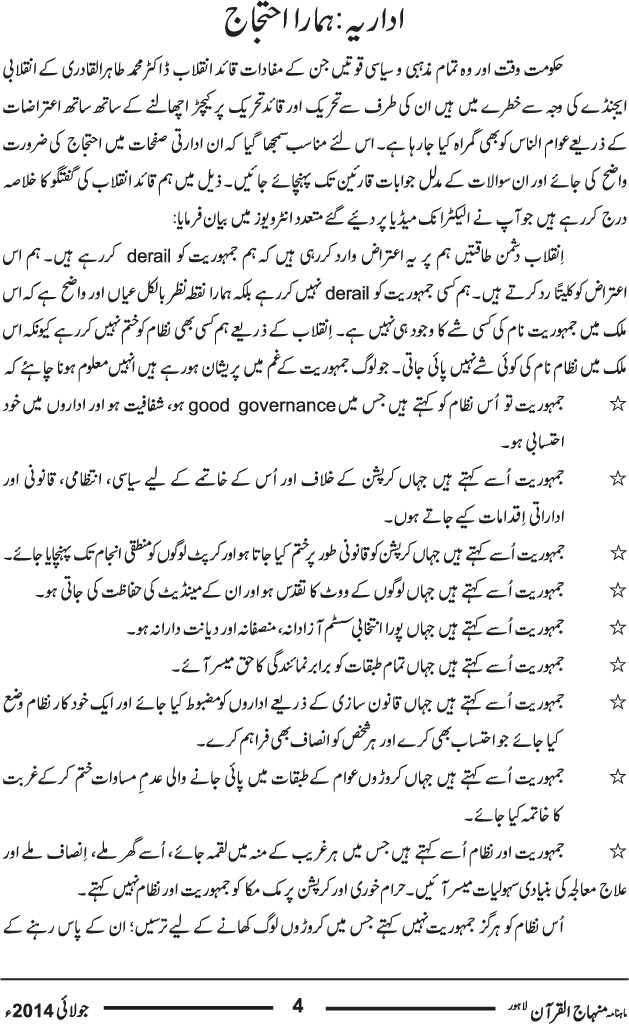 اداریہ: ہمارا احتجاج
حکومت وقت اور وہ تمام مذہبی و سیاسی قوتیں جن کے مفادات قائد انقلاب ڈاکٹر محمد طاہر القادری کے انقلابی
ایجنڈے کی وجہ سے خطرے میں ہیں ان کی طرف سے تحریک اور قائد تحریک پر کیچڑ اچھالنے کے ساتھ ساتھ اعتراضات
کے ذریعے عوام الناس کو بھی گمراہ کیا جارہا ہے۔ اس لئے مناسب سمجھا گیا کہ ان ادارتی صفحات میں احتجاج کی ضرورت
واضح کی جائے اور ان سوالات کے مدلل جوابات قارئین تک پہنچائے جائیں۔ ذیل میں ہم قائد انقلاب کی گفتگو کا خلاصہ
درج کررہے ہیں جو آپ نے الیکٹرانک میڈیا پر دیئے گئے متعدد انٹرویوز میں بیان فرمایا:
اِنقلاب دشمن طاقتیں ہم پر یہ اعتراض وارد کررہی ہیں کہ ہم جمہوریت کو derail کررہے ہیں۔ ہم اس
اعتراض کو کلیتًا رد کرتے ہیں۔ ہم کسی جمہوریت کو derail نہیں کررہے بلکہ ہمارا نقطہ نظر بالکل عیاں اور واضح ہے کہ اس
ملک میں جمہوریت نام کی کسی شے کا وجود ہی نہیں ہے۔ اِنقلاب کے ذریعے ہم کسی بھی نظام کو ختم نہیں کررہے کیونکہ اس
ملک میں نظام نام کی کوئی شے نہیں پائی جاتی۔ جو لوگ جمہوریت کے غم میں پریشان ہورہے ہیں انہیں معلوم ہونا چاہئے کہ
☆ جمہوریت تو اُس نظام کو کہتے ہیں جس میں good governance ہو، شفافیت ہو اور اداروں میں خود
احتسابی ہو۔
☆ جمہوریت اُسے کہتے ہیں جہاں کرپشن کے خلاف اور اُس کے خاتمے کے لیے سیاسی، انتظامی، قانونی اور
اداراتی اِقدامات کیے جاتے ہوں۔
☆ جمہوریت اُسے کہتے ہیں جہاں کرپشن کو قانونی طور پر ختم کیا جاتا ہو اور کرپٹ لوگوں کو منطقی انجام تک پہنچایا جائے۔
☆ جمہوریت اُسے کہتے ہیں جہاں لوگوں کے ووٹ کا تقدّس ہو اور ان کے مینڈیٹ کی حفاظت کی جاتی ہو۔
☆ جمہوریت اُسے کہتے ہیں جہاں پورا انتخابی سسٹم آزادانہ، منصفانہ اور دیانت دارانہ ہو۔
☆ جمہوریت اُسے کہتے ہیں جہاں تمام طبقات کو برابر نمائندگی کا حق میسر آئے۔
☆ جمہوریت اُسے کہتے ہیں جہاں قانون سازی کے ذریعے اداروں کو مضبوط کیا جائے اور ایک خود کار نظام وضع
کیا جائے جو احتساب بھی کرے اور ہر شخص کو انصاف بھی فراہم کرے۔
☆ جمہوریت اُسے کہتے ہیں جہاں کروڑوں عوام کے طبقات میں پائی جانے والی عدمِ مساوات ختم کرکے غربت
کا خاتمہ کیا جائے۔
☆ جمہوریت اور نظام اُسے کہتے ہیں جس میں ہر غریب کے منہ میں لقمہ جائے، اُسے گھر ملے، اِنصاف ملے اور
علاج معالجہ کی بنیادی سہولیات میسر آئیں۔ حرام خوری اور کرپشن پر مک مکا کو جمہوریت اور نظام نہیں کہتے۔
اُس نظام کو ہرگز جمہوریت نہیں کہتے جس میں کروڑوں لوگ کھانے کے لیے ترسیں؛ ان کے پاس رہنے کے
ماہنامہ منہاج القرآن لاہور 4 جولائی 2014ء